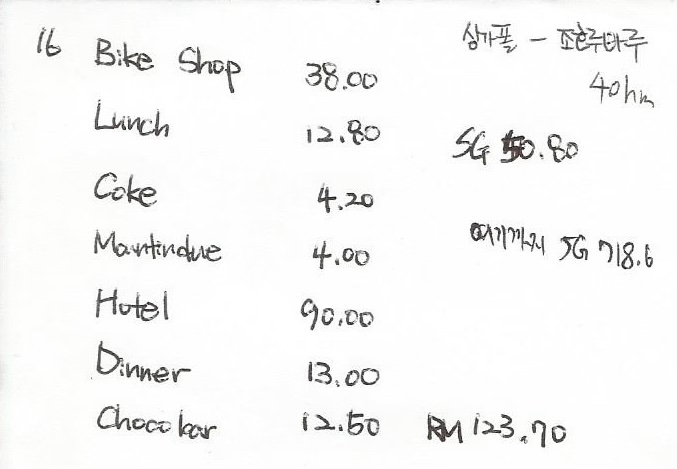 16 Bike Shop 38.00 싱가폴 - 조호루바루
40hm
Lunch 12.80 SG 50.80
Coke 4.20
Mantindue 4.00 여기까지 SG 718.6
Hotel 90.00
Dinner 13.00
Choco bar 12.50 RM 123.70